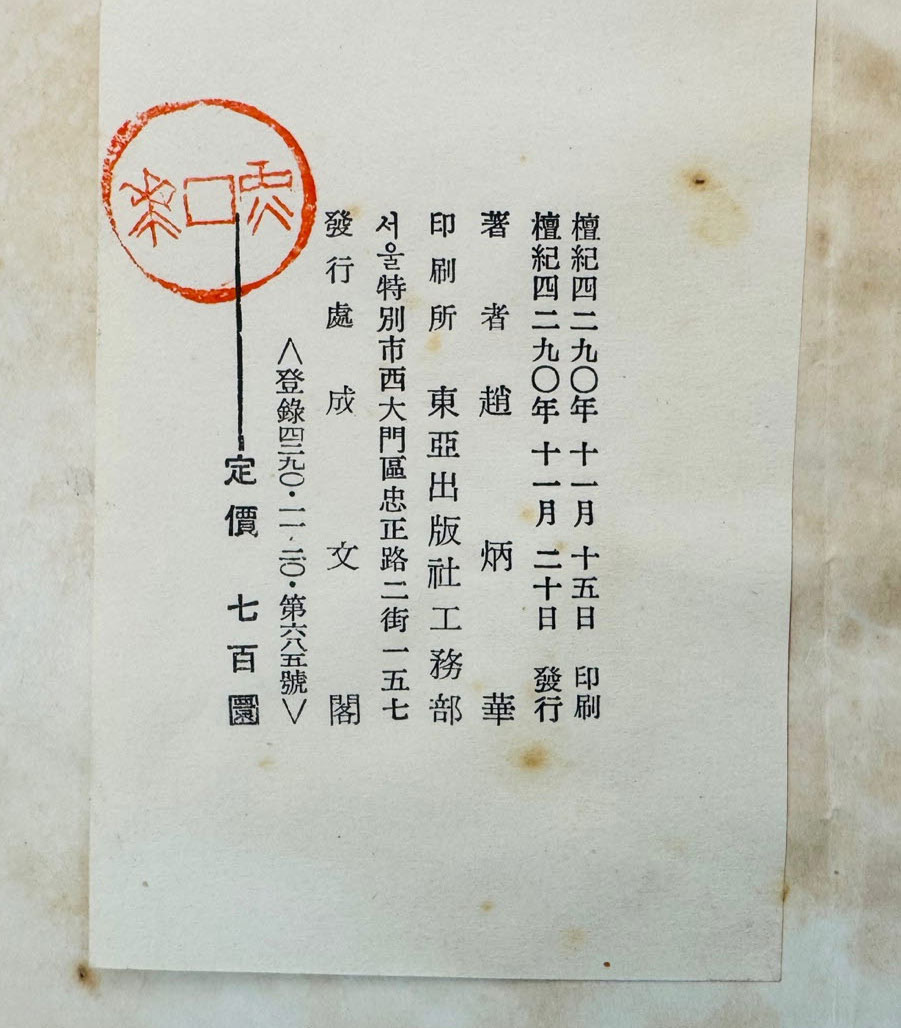 檀紀四二九〇年 十一月 十五日 印刷
檀紀四二九〇年 十一月 二十日 發行
著者 趙炳華
印刷所 東亞出版社工務部
서울特別市西大門區忠正路二街一五七
發行處 成文閣
<登錄四二九〇・一一・二〇・第六八五號>
定價 七百圜